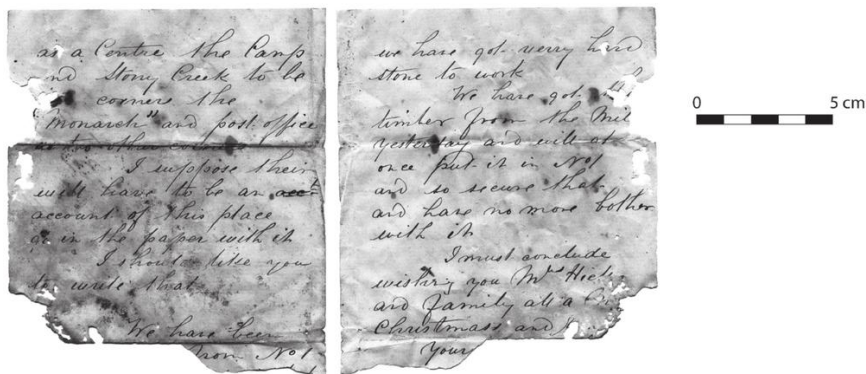 as a Centre the Camp
nd Stony Creek to be
corners the
"Monarch" and post office
as two other corners
I suppose their
will have to be an acct
account of this place
in the paper with it
I should like you
to write that
We have been
from No 1
we have got verry hard
stone to work
We have got
timber from the Mil
yesterday and will at
once put it in No 1
and so secure that
and have no more bother
with it
I must conclude
wishing you Mrs Hick
and family all a
Christmass and
Your
0 5 cm